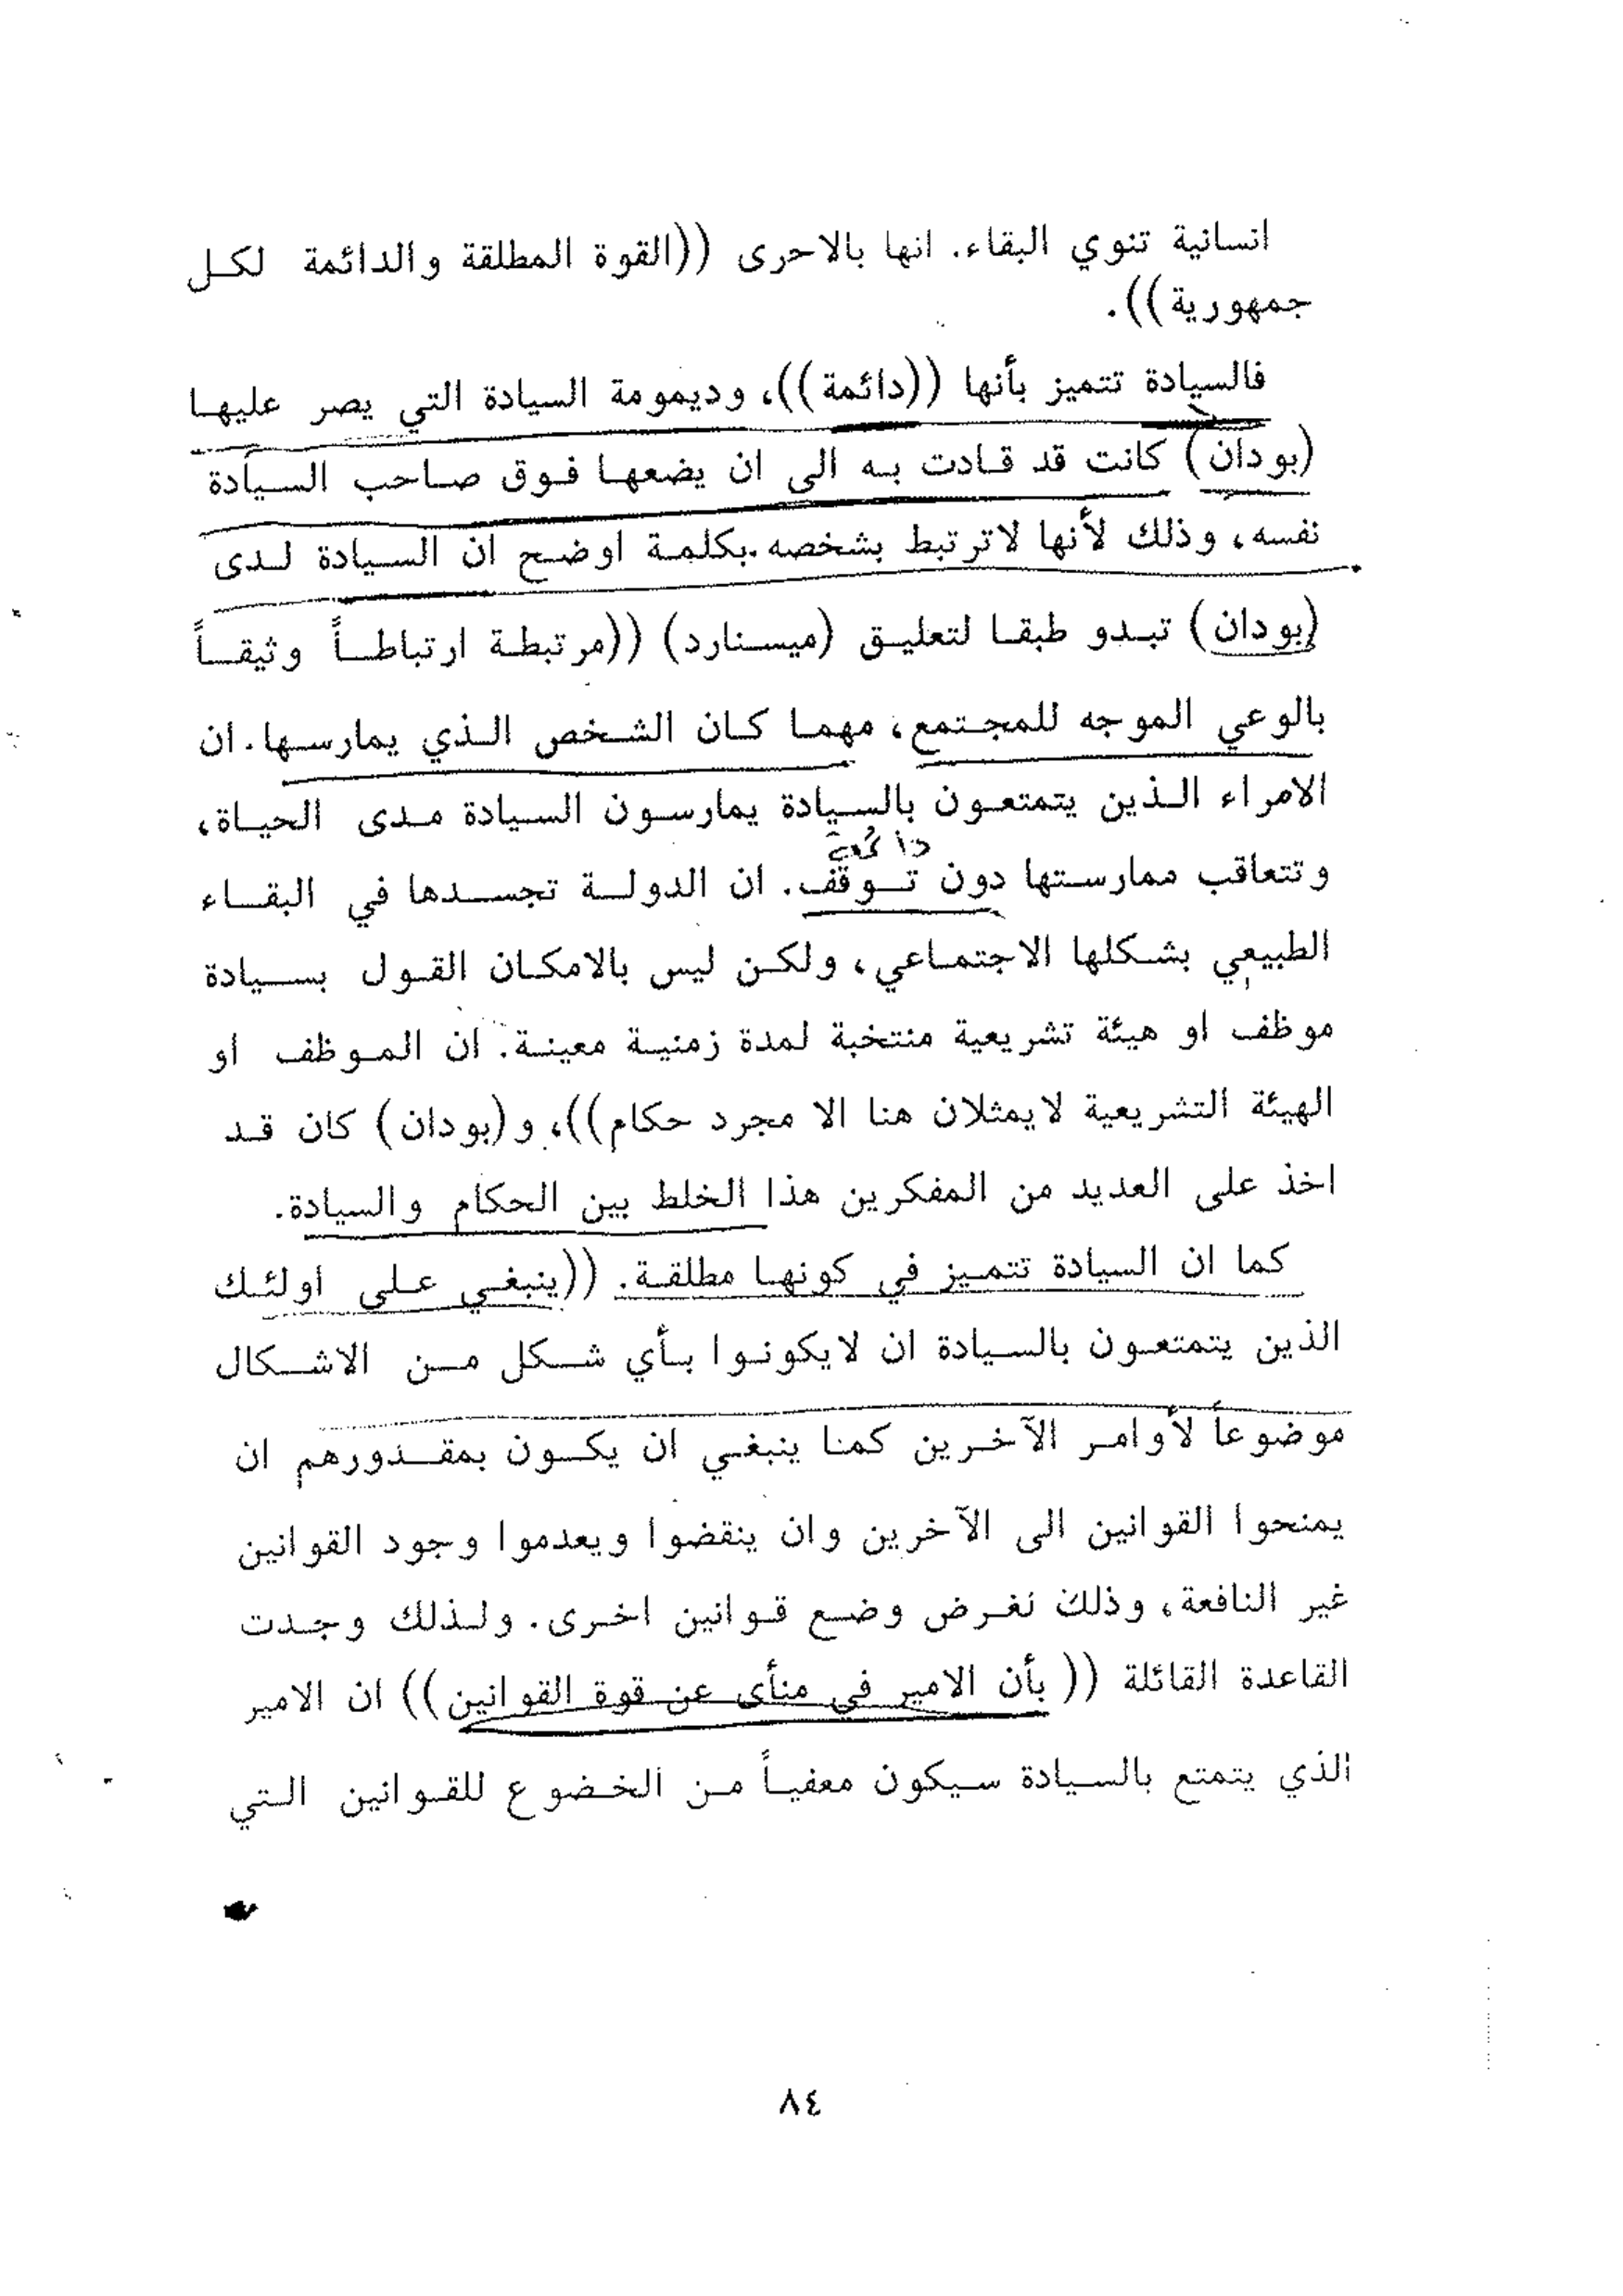 انسانية تنوي البقاء. انها بالاحرى ((القوة المطلقة والدائمة لكل
جمهورية)).
فالسيادة تتميز بأنها ((دائمة))، وديمومة السيادة التي يصر عليها
(بودان) كانت قد قادت به الى ان يضعها فوق صاحب السيادة
نفسه، وذلك لأنها لاترتبط بشخصه.بكلمة اوضح ان السيادة لدى
(بودان) تبدو طبقا لتعليق (ميسنارد) ((مرتبطة ارتباطاً وثيقاً
بالوعي الموجه للمجتمع، مهما كان الشخص الذي يمارسها. ان
الامراء الذين يتمتعون بالسيادة يمارسون السيادة مدى الحياة،
دائمة
وتتعاقب ممارستها دون توقف. ان الدولة تجسدها في البقاء
الطبيعي بشكلها الاجتماعي، ولكن ليس بالامكان القول بسيادة
موظف او هيئة تشريعية منتخبة لمدة زمنية معينة. ان الموظف او
الهيئة التشريعية لايمثلان هنا الا مجرد حكام))، و(بودان) كان قد
اخذ على العديد من المفكرين هذا الخلط بين الحكام والسيادة.
كما ان السيادة تتميز في كونها مطلقة. ((ينبغي على اولئك
الذين يتمتعون بالسيادة ان لايكونوا بأي شكل من الاشكال
موضوعاً لأوامر الآخرين كمنا ينبغي ان يكون بمقدورهم ان
يمنحوا القوانين الى الآخرين وان ينقضوا ويعدموا وجود القوانين
غير النافعة، وذلك لغرض وضع قوانين اخرى. ولذلك وجدت
القاعدة القائلة ((بأن الامير في منأى عن قوة القوانين)) ان الامير
الذي يتمتع بالسيادة سيكون معفياً من الخضوع للقوانين التي
٨٤